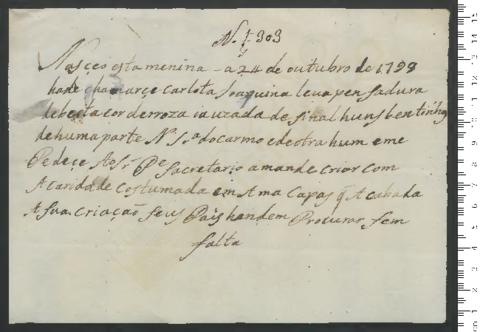 N. 1303
Nasçeo esta menina - a 24 de outubro de 1799
hade chamarçe Carlota Joaquina leva pen sadura
de beata cor de roza ia uzada de sinal huns bentinhos
de huma parte N. S.ª do carmo e de otra hum eme
Pedeçe Ao S.r P.e Sacretario a mande criar com
A carida de costumada em Ama Capas q̃ Acabada
A sua criação seus Pais handem Procurar sem
falta